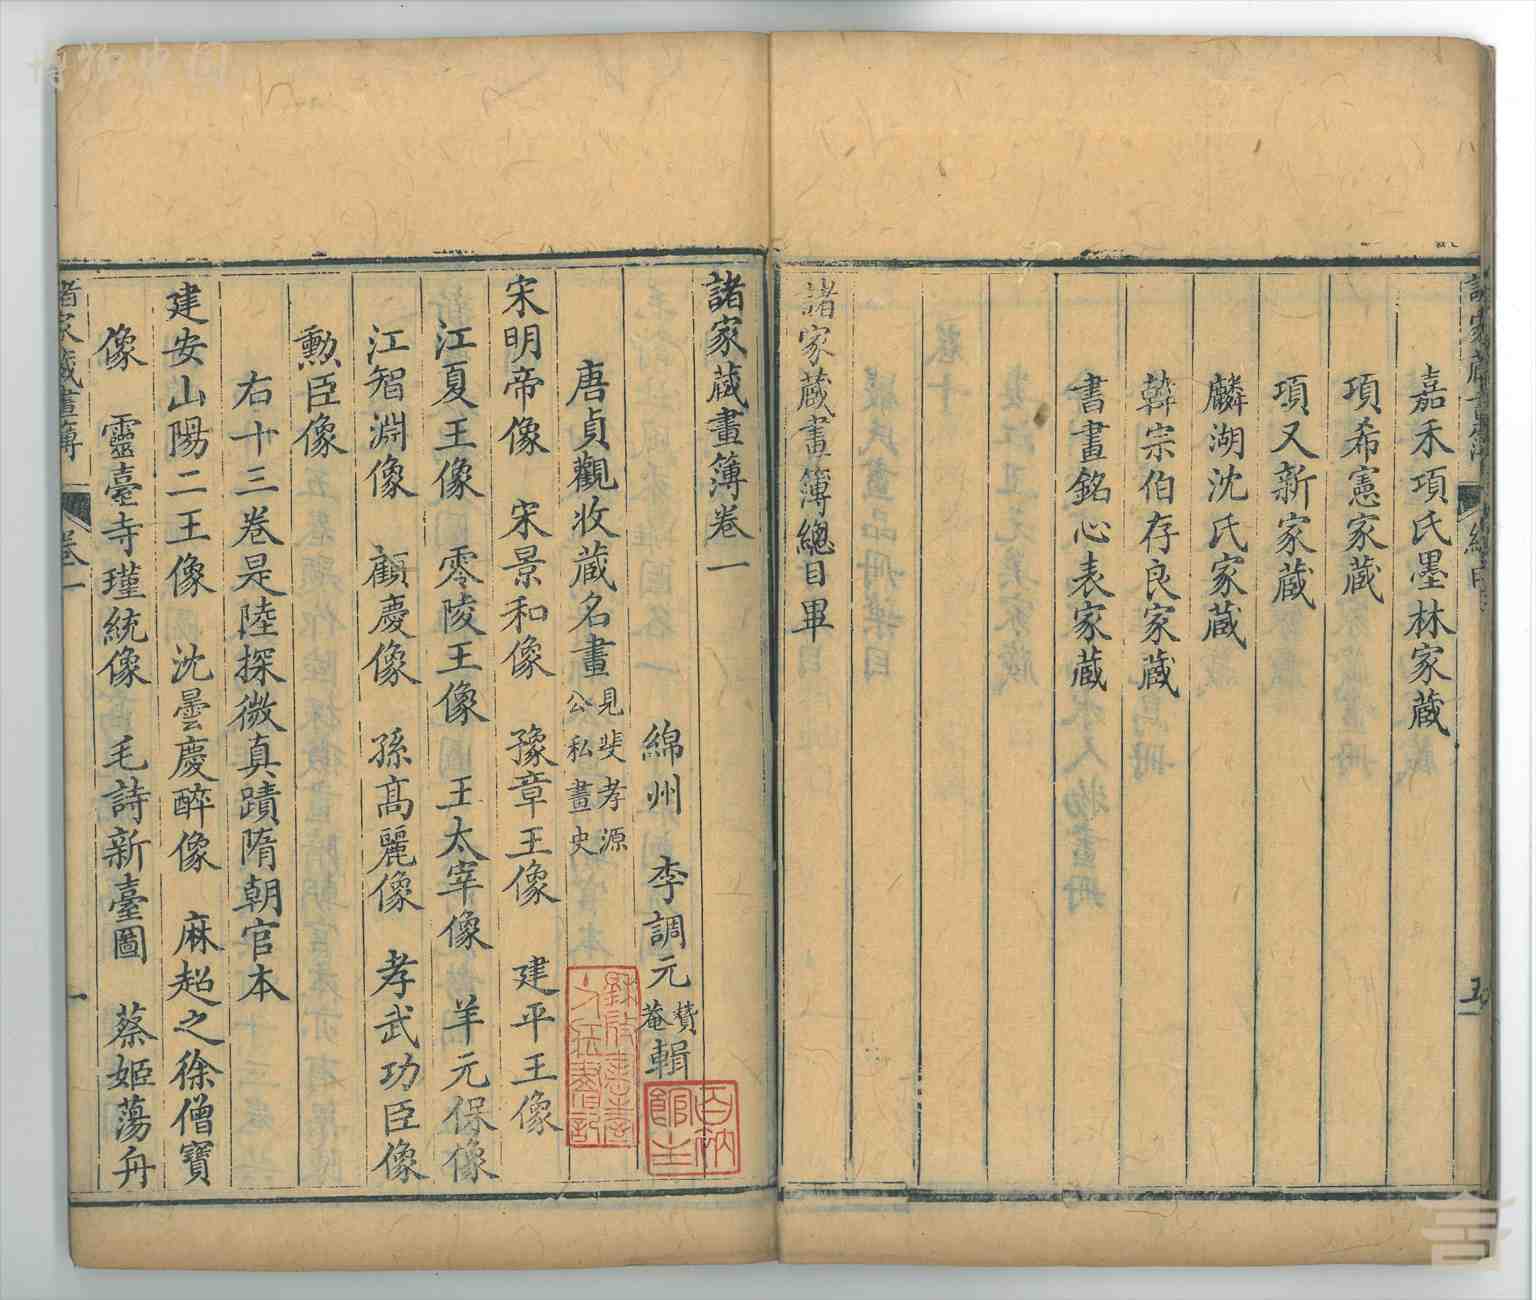 嘉禾項氏墨林家藏
項希憲家藏
項又新家藏
麟湖沈氏家藏
韓宗伯存良家藏
書畫銘心表家藏
諸家藏畫簿總目畢
諸家藏畫簿卷一
綿州 李調元 贊菴 輯
唐貞觀收藏名畫 見斐孝源公私畫史
宋明帝像 宋景和像 豫章王像 建平王像
江夏王像 零陵王像 王太宰像 羊元保像
江智淵像 顧慶像 孫高麗像 孝武功臣像
勲臣像
右十三卷是陸探微真蹟隋朝官本
建安山陽二王像 沈曇慶醉像 麻超之徐僧寶
像 靈臺寺瑾統像 毛詩新臺圖 蔡姬蕩舟
諸家藏畫簿 卷一 一
百衲館主
博物中国